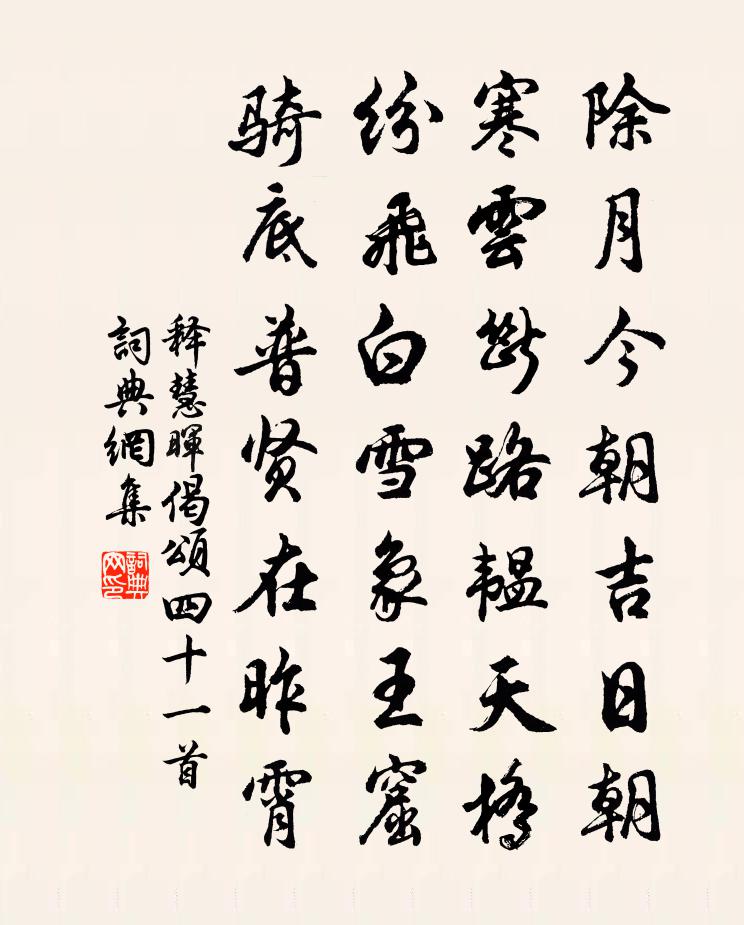 除月今朝吉日朝
寒雲斷路韞天橋
紛飛白雪象王窟
騎底普贤在昨霄
释慧暉偈頌四十一首
詞典網集
詞典网印